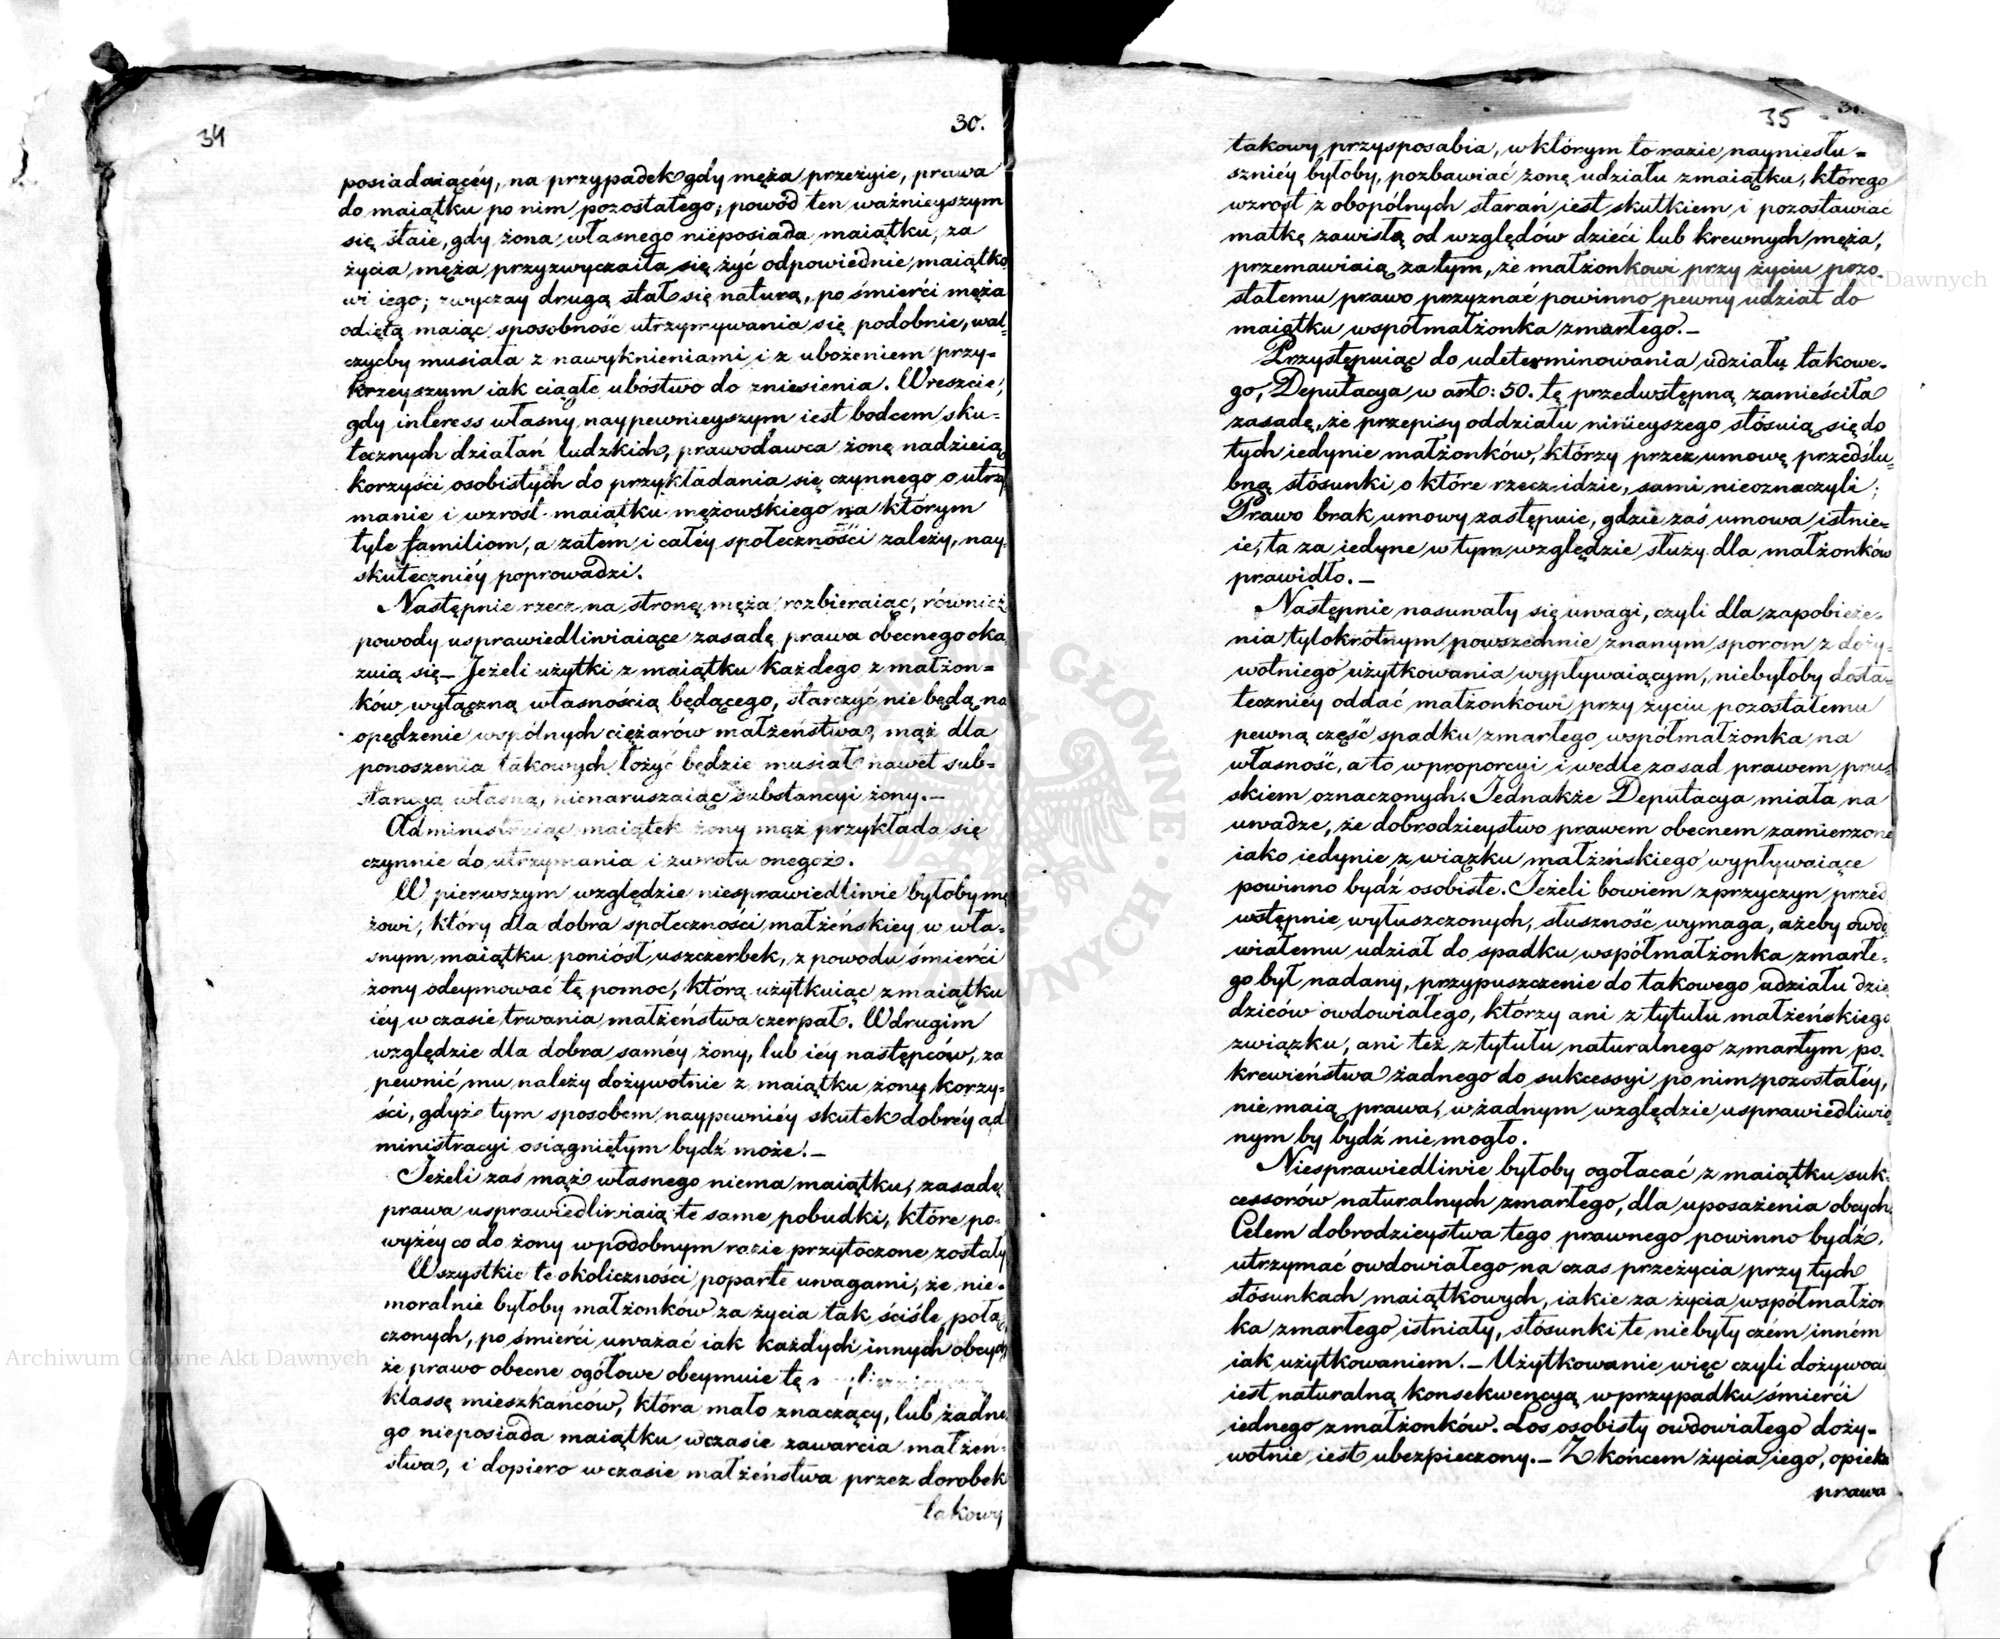 34
30.
posiadaiącéy, na przypadek gdy męża przeżyie, prawa
do maiątku po nim pozostałego; powód ten ważnieyszym
się staie, gdy żona własnego nieposiada maiątku, za
życia męża przyzwyczaiła się żyć odpowiednie maiątko
wi iego; zwyczay drugą stał się naturą, po śmierci męża
odiętą maiąc sposobność utrzymywania się podobnie, wal=
czycby musiała z nawyknieniami i z ubożeniem przy=
krzeyszym iak ciągłe ubóstwo do zniesienia. Wreszcie,
gdy interess własny naypewnieyszym iest bodcem sku=
tecznych działań ludzkich, prawodawca żonę nadzieią
korzyści osobistych do przykładania się czynnego o utrzy
manie i wzrost maiątku mężowskiego na którym
tyle familiom, a zatem i całéy społeczności zależy, nay
skuteczniéy poprowadzi.
Następnie rzecz na stronę męża rozbieraiąc, również
powody usprawiedliwiaiące zasadę prawa obecnego oka
zuią się – Jeżeli użytki z maiątku każdego z małżon=
ków wyłączną własnością będącego, starczyć nie będą na
opędzenie wspólnych ciężarów małżeństwa, mąż dla
ponoszenia takowych łożyć będzie musiał nawet sub=
stancyą własną, nienaruszaiąc substancyi żony. –
Administruiąc maiątek żony mąż przykłada się
czynnie do utrzymania i zwrotu onegoż.
W pierwszym względzie niesprawiedliwie byłoby mę
żowi, który dla dobra społeczności małżeńskiey w wła=
snym maiątku poniósł uszczerbek, z powodu śmierci
żony odeymować tę pomoc, którą użytkuiąc z maiątku
iéy w czasie trwania małżeństwa czerpał. W drugim
względzie dla dobra saméy żony, lub iéy następców, za
pewnić mu należy dożywotnie z maiątku żony korzy=
ści, gdyż tym sposobem naypewniéy skutek dobréy ad
ministracyi osiągniętym bydź może. –
Jeżeli zaś mąż własnego niema maiątku, zasadę
prawa usprawiedliwiaią te same pobudki, które po=
wyżéy co do żony w podobnym razie przytoczone zostały
Wszystkie te okoliczności poparte uwagami, że nie=
moralnie byłoby małżonków za życia tak ściśle połą
czonych, po śmierci uważać iak każdych innych obcych,
że prawo obecne ogółowe obeymuie tę
klassę mieszkańców, która mało znaczący, lub żadne
go nieposiada maiątku w czasie zawarcia małżeń=
stwa, i dopiero w czasie małżeństwa przez dorobek
takowy
35
31.
takowy przysposabia, w którym to razie nayniesłu=
szniéy byłoby, pozbawiać żonę udziału z maiątku, którego
wzrost z obopólnych starań iest skutkiem i pozostawiać
matkę zawisłą od względów dzieci lub krewnych męża,
przemawiaią zatym, że małżonkowi przy życiu pozo=
stałemu prawo przyznać powinno pewny udział do
maiątku współmałżonka zmarłego. –
Przystępuiąc do udeterminowania udziału takowe=
go, Deputacya w art: 50. tę przedwstępną zamieściła
zasadę, że przepisy oddziału ninieyszego stósuią się do
tych iedynie małżonków, którzy przez umowę przedślu
bną stósunki o które rzecz idzie, sami nieoznaczyli;
Prawo brak umowy zastępuie, gdzie zaś umowa istnie=
ie, ta za iedyne w tym względzie służy dla małżonków
prawidło. –
Następnie nasuwały się uwagi, czyli dla zapobieże=
nia tylokrotnym powszechnie znanym sporom z doży=
wotniego użytkowania wypływaiącym, niebyłoby dosta=
teczniéy oddać małżonkowi przy życiu pozostałemu
pewną część spadku zmarłego współmałżonka na
własność, a to w proporcyi i wedle zasad prawem pru=
skiem oznaczonych. Jednakże Deputacya miała na
uwadze, że dobrodzieystwo prawem obecnem zamierzone
iako iedynie z wiązku małżeńskiego wypływaiące
powinno bydź osobiste. Jeżeli bowiem z przyczyn przed
wstępnie wyłuszczonych, słuszność wymaga, ażeby owdo
wiałemu udział do spadku współmałżonka zmarłe=
go był nadany, przypuszczenie do takowego udziału dzie
dziców owdowiałego, którzy ani z tytułu małżeńskiego
związku, ani też z tytułu naturalnego z marłym po=
krewieństwa żadnego do sukcessyi po nim pozostałéy,
nie maią prawa, w żadnym względzie usprawiedliwio
nym by bydź nie mogło.
Niesprawiedliwie byłoby ogołacać z maiątku suk=
cessorów naturalnych zmarłego, dla uposażenia obcych.
Celem dobrodzieystwa tego prawnego powinno bydź,
utrzymać owdowiałego na czas przeżycia przy tych
stósunkach maiątkowych, iakie za życia współmałżon
ka zmarłego istniały, stósunki te niebyły czém inném
iak użytkowaniem. – Użytkowanie więc czyli dożywocie
iest naturalną konsekwencyą w przypadku śmierci
iednego z małżonków. Los osobisty owdowiałego doży=
wotnie iest ubezpieczony. – Z końcem życia iego, opieka
prawa
Archiwum Główne Akt Dawnych
Archiwum Główne Akt Dawnych